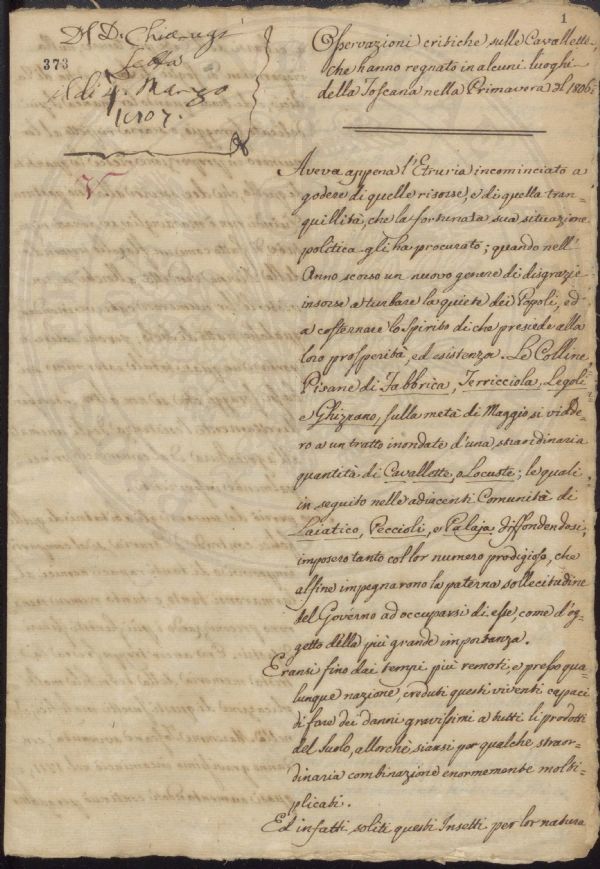 Del D. Chiarugi
373
Letta
il di 4. Marzo
1807.
1
Osservazioni critiche sulle Cavallette
che hanno regnato in alcuni luoghi
della Toscana nella Primavera del 1806.
Aveva appena l'Etruria incominciato a
godere di quelle risorse, e di quella tran=
quillità, che la fortunata sua situazione
politica gli ha procurato; quando nell'
Anno scorso un nuovo genere di disgrazie
insorse a turbare la quiete dei Popoli, ed
a costernare lo Spirito di che presiede alla
loro prosperità, ed esistenza. Le Colline
Pisane di Fabbrica, Terricciola, Legoli
e Ghizzano, sulla metà di Maggio si vidde=
ro a un tratto inondate d'una straordinaria
quantità di Cavallette, o Locuste; le quali
in seguito nelle adiacenti Comunità di
Laiatico, Peccioli, e Palaja diffondendosi,
imposero tanto col lor numero prodigioso, che
alfine impegnarono la paterna sollecitudine
del Governo ad occuparsi di esse, come d'og=
getto della più grande importanza.
Eransi fino dai tempi più remoti, e presso qua=
lunque nazione, creduti questi viventi capaci
di fare dei danni gravissimi a tutti li prodotti
del suolo, allorchè siansi per qualche straor=
dinaria combinazione enormemente molti=
plicati.
Ed infatti soliti questi Insetti per lor natura